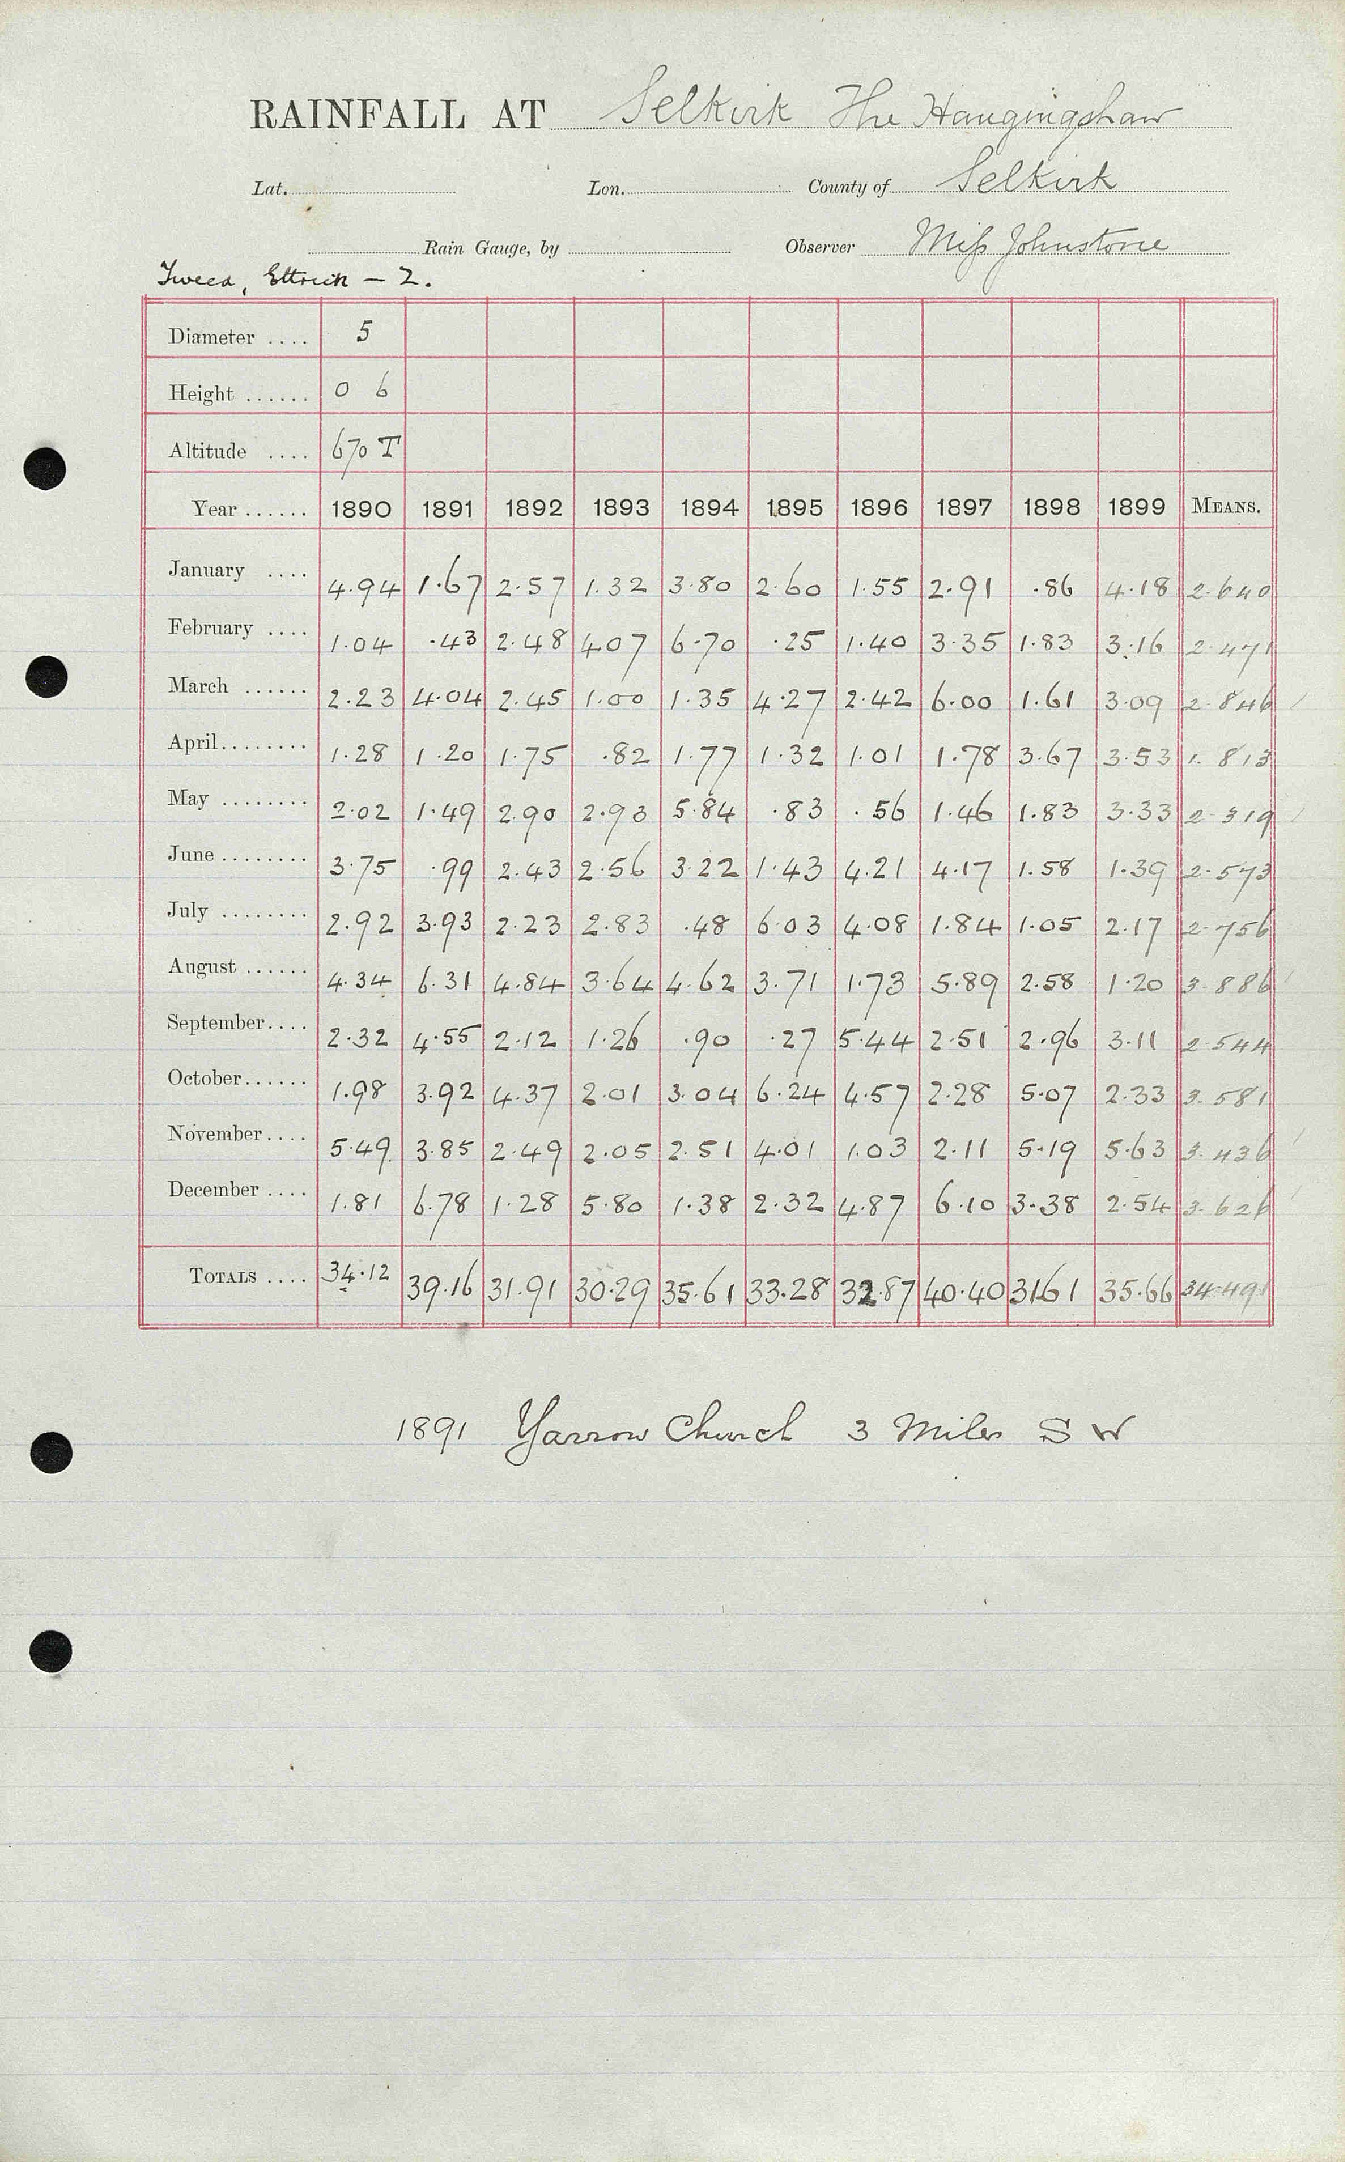 RAINFALL AT Selkirk The Hangingshaw
Lat. Lon. County of Selkirk
Rain Gauge, by Observer Miss Johnstone
Tweed, Ettrick – 2.
Diameter .... 5
Height ...... 0 6
Altitude .... 670 T
Year ...... 1890 1891 1892 1893 1894 1895 1896 1897 1898 1899 MEANS.
January .... 4.94 1.67 2.57 1.32 3.80 2.60 1.55 2.91 .86 4.18 2.640
February .... 1.04 .43 2.48 4.07 6.70 .25 1.40 3.35 1.83 3.16 2.471
March ...... 2.23 4.04 2.45 1.00 1.35 4.27 2.42 6.00 1.61 3.09 2.846
April........ 1.28 1.20 1.75 .82 1.77 1.32 1.01 1.78 3.67 3.53 1.813
May ........ 2.02 1.49 2.90 2.93 5.84 .83 .56 1.46 1.83 3.33 2.319
June ........ 3.75 .99 2.43 2.56 3.22 1.43 4.21 4.17 1.58 1.39 2.573
July ........ 2.92 3.93 2.23 2.83 .48 6.03 4.08 1.84 1.05 2.17 2.756
August ...... 4.34 6.31 4.84 3.64 4.62 3.71 1.73 5.89 2.58 1.20 3.886
September.... 2.32 4.55 2.12 1.26 .90 .27 5.44 2.51 2.96 3.11 2.544
October...... 1.98 3.92 4.37 2.01 3.04 6.24 4.57 2.28 5.07 2.33 3.581
November.... 5.49 3.85 2.49 2.05 2.51 4.01 1.03 2.11 5.19 5.63 3.436
December .... 1.81 6.78 1.28 5.80 1.38 2.32 4.87 6.10 3.38 2.54 3.626
TOTALS .... 34.12 39.16 31.91 30.29 35.61 33.28 32.87 40.40 31.61 35.66 34.491
1891 Yarrow Church 3 Miles S W